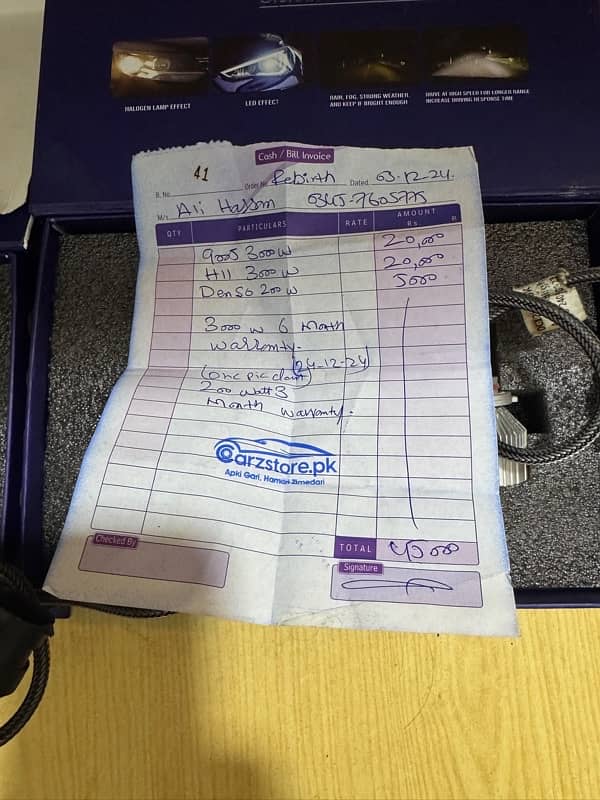 HALOGEN LAMP EFFECT
LED EFFECT
RAIN, FOG, STRONG WEATHER,
AND KEEP IF BRIGHT ENOUGH
DRIVE AT HIGH SPEED FOR LONGER RANGE
INCREASE DRIVING RESPONSE TIME
Cash / Bill Invoice
B. No. 41 Order No. Rebirth Dated 03-12-24.
M/s Ali Hassan
QTY PARTICULARS RATE AMOUNT
Rs P.
9005 3000 W 20,000
H11 3000 W 20,000
Denso 200 W 5000
3000 W 6 Month
Warrenty.
(24-12-24)
(one pic claim)
200 Watt 3
Month Warrenty.
Carzstore.pk
Apki Gari, Hamari Zimedari
Checked By
TOTAL 45000
Signature